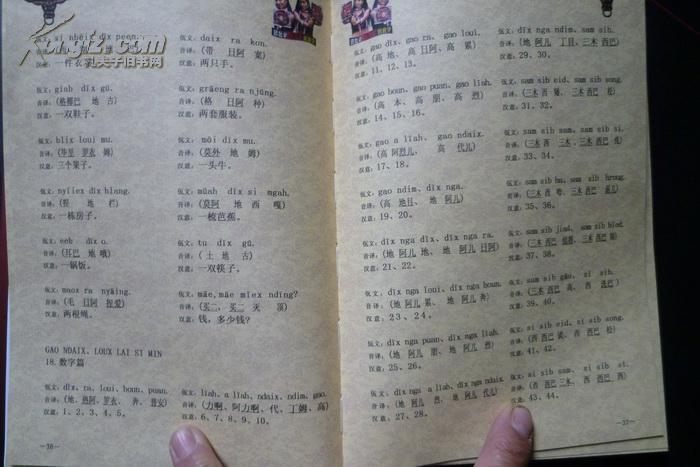 kongfz.com
孔夫子旧书网
佤文: si nbēi dix peen.
汉意: 一件衣裳
佤文: giab dix gū.
音译: (格耶巴 地 古)
汉意: 一双鞋子。
佤文: blix loui mu.
音译: (毕里 罗衣 姆)
汉意: 三个果子。
佤文: nyiiex dix hlang.
音译: 地 栏)
汉意: 一栋房子。
佤文: eeb dix o.
音译: (耳巴 地 哦)
汉意: 一锅饭。
佤文: maox ra nyāing.
音译: (毛 日阿 捏爱)
汉意: 两根绳。
GAO NDAIX. LOUX LAI SI MIN
18. 数字篇
佤文: dix, ra, loui, boun, puan.
音译: (地、热阿、罗衣、 奔、普安)
汉意: 1、2、3、4、5。
—36—
佤文: daix ra kon.
音译: (带 日阿 宽)
汉意: 两只手。
佤文: grāeng ra njūng.
音译: (格 日阿 种)
汉意: 两套服装。
佤文: mōi dix mu.
音译: (莫外 地 姆)
汉意: 一头牛。
佤文: mūah dix si ngah.
音译: (莫阿 地 西 嘎)
汉意: 一梳芭蕉。
佤文: tu dix gū.
音译: ( 土 地 古)
汉意: 一双筷子。
佤文: māe, māe miex nding?
音译: (买二, 买二 天 顶)
汉意: 钱, 多少钱?
佤文: liah, a liah, ndaix, ndim, gao.
音译: (力啊、阿力啊、代、丁姆、高)
汉意: 6、7、8、9、10。
佤文: gao dix, gao ra, gao loui.
音译: (高 地、高 日阿、高 累)
汉意: 11、12、13。
佤文: gao boun, gao puan, gao liah.
音译: (高 本、高 朋、高 烈)
汉意: 14、15、16。
佤文: gao a liah, gao ndaix.
音译: (高 阿烈儿、 高 代儿)
汉意: 17、18。
佤文: gao ndim, dix nga.
音译: (高 地目、 地 阿儿)
汉意: 19、20。
佤文: dix nga dix, dix nga ra.
音译: (地 阿儿 地、 地 阿儿 日阿)
汉意: 21、22。
佤文: dix nga loui, dix nga boun.
音译: (地 阿儿 累、地 阿儿 奔)
汉意: 23、24。
佤文: dix nga puan, dix nga liah.
音译: (地 阿儿 朋、地 阿儿 烈)
汉意: 25、26。
佤文: dix nga a liah, dix nga ndaix
音译: (地 阿儿 烈、地 阿儿 代儿)
汉意: 27、28。
dix nga ndim, sam sib.
音译: (地 阿儿 丁目、三木 西巴)
汉意: 29、30。
佤文: sam sib eid, sam sib song.
音译: (三木 西 三木 西巴 松)
汉意: 31、32。
佤文: sam sib sam, sam sib si.
汉意: 33、34。
佤文: sam sib ha, sam sib hrong.
汉意: 35、36。
佤文: sam sib jied, sam sib bied.
汉意: 37、38。
佤文: sam sib gāu, si sib.
音译: (三木 西巴 高、 西 选巴)
汉意: 39、40。
佤文: si sib eid, si sib song.
汉意: 41、42。
佤文: si sib sam, si sib si.
汉意: 43、44。
—37—